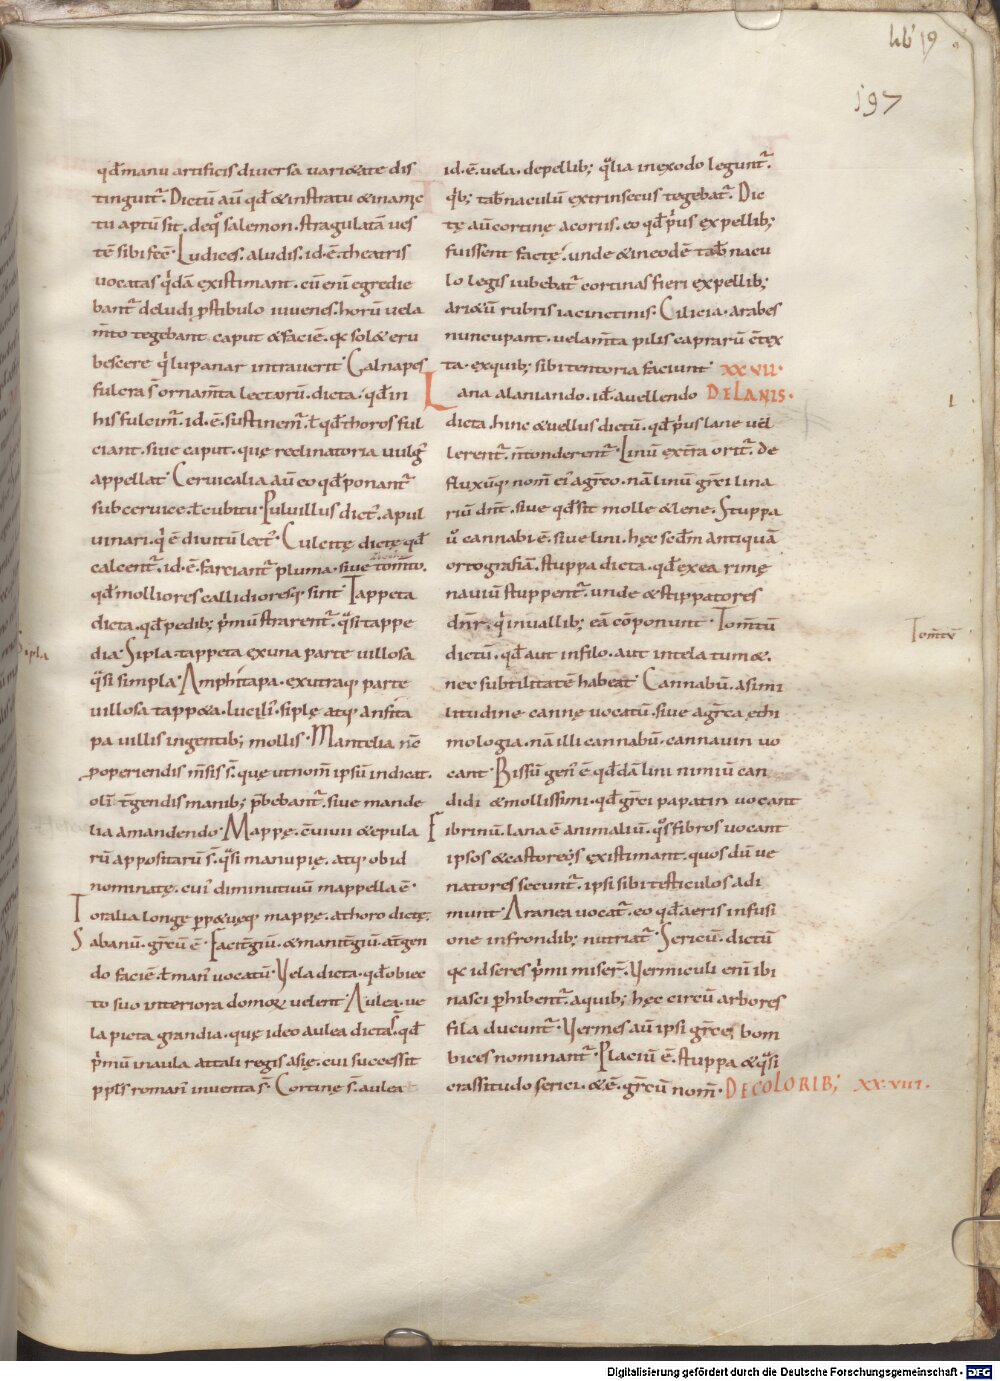 lib' 19.
197
qđ manu artificis diversa varietate dis
tinguit᷑. Dictū aū qđ & instratu & inamic
tu aptū sit. deq͛o salemon. stragulatā ves
tē sibi fecē. Ludices. a ludis. id. ē. theatris
vocatas q͛dā existimant. cū enī egredie
bant᷑ de ludi p̄stibulo iuvenes. horū vela
m̄to tegebant caput & faciē. qc solet eru
bescere q͛ lupanar intraverit. Galnapes
fulcra s̄ ornam̄ta lectorū. dicta. qđ in
his fulcim᷑. id. ē. sustinem᷑. ł qđ thoros ful
ciant. sive caput. quę reclinatoria vulg᷑
appellat. Cervicalia aū eo qđ ponant᷑
sub cervice ł cubitu. Pulvillus dict᷑. a pul
vinari. q͛ ē divitū lect᷑. Culcitę dictę qđ
calcent᷑. id. ē. farciant᷑ pluma. sive tom̄to.
qđ molliores callidioresq; sint. Tappeta
dicta. qđ pedib; p͛mū strarent᷑. q͛si tappe
dia. Sipla tappeta ex una parte villosa
q͛si simpla. Amphitapa. ex utraq; parte
villosa tappeta. lucili᷑. siplę atq; ansita
pa villis ingentib; mollis. Mantelia nc̄
ꝓ operiendis m̄sis s̄. quę ut nom̄ ipsū indicat.
olī t̄gendis manib; p̄bebant᷑. sive mande
lia a mandendo. Mappę. c̄uivii & epula
rū appositarū s̄. q͛si manupię. atq; ob id
nominatę. cui᷑ diminutivū mappella ē.
Toralia longę ꝑpetuęq; mappę. a thoro dictę.
Sabanū. grecū ē. Facit̄giū. & manit̄giū. a t̄gen
do faciē. ł man᷑ vocatū. Vela dicta. qđ obiec
to suo interiora domorū velent. Aulea. ve
la picta grandia. quę ideo aulea dicta s̄. qđ
p͛mū in aula attali regis asię. cui successit
ppls romanꝰ inventa s̄. Cortinę s̄. aulea
id. ē. vela. de pellib; q͛lia in exodo legunt᷑.
q͛b; tab̄naculū extrinsecus tegebat᷑. Dic
tę aū cortinę a coriis. eo qđ p͛us ex pellib;
fuissent factę. unde & in eodē tab̄nacu
lo legis iubebat᷑ cortinas fieri ex pellib;
arietū rubris iacinctinis. Cilicia. arabes
nuncupant. velam̄ta pilis caprarū c̄tex
ta. ex quib; sibi tentoria faciunt. XXVII.
Lana a laniando. id. a vellendo DE LANIS.
dicta. hinc & vellus dictū. qđ p͛us lane vel
lerent᷑. n̄ tonderent᷑. Linū ex t̄ra orit᷑. de
fluxūq; nom̄ ei᷑ a greco. nā linū greci lina
riū dn̄t. sive qđ sit molle & lene. Stuppa
ů cannabi ē. sive lini. hęc scđm antiquā
ortografiā. stuppa dicta. qđ ex ea rimę
naviū stuppent᷑. unde & stippatores
dn̄r. q͛ in vallib; eā cōponunt. Tom̄tū
dictū. qđ aut in filo. aut in tela tumet.
nec subtilitatē habeat. Cannabū. a simi
litudine cannę vocatū. sive a greca ethi
mologia. nā illi cannabū. cannavin vo
cant. Bissū gen᷑ ē qđdā lini nimiū can
didi & mollissimi. qđ greci papatin vocant
Fibrinū. lana ē animaliū. q͛s fibros vocant
ipsos & castoreos existimant. quos dū ve
natores secunt᷑. ipsi sibi testiculos adi
munt. Aranea vocat᷑. eo qđ aeris infusi
one in frondib; nutriat᷑. Sericū. dictū
qc id seres p͛mi miser᷑. Vermiculi enī ibi
nasci ꝑhibent᷑. a quib; hęc circū arbores
fila ducunt᷑. Vermes aū ipsi grece, bom
bices nominant᷑. Placiū ē. stuppa & q͛si
crassitudo serici. & ē. grecū nom̄. DE COLORIB; XXVIII.
Sipla
Tom̄tū
Digitalisierung gefördert durch die Deutsche Forschungsgemeinschaft - DFG